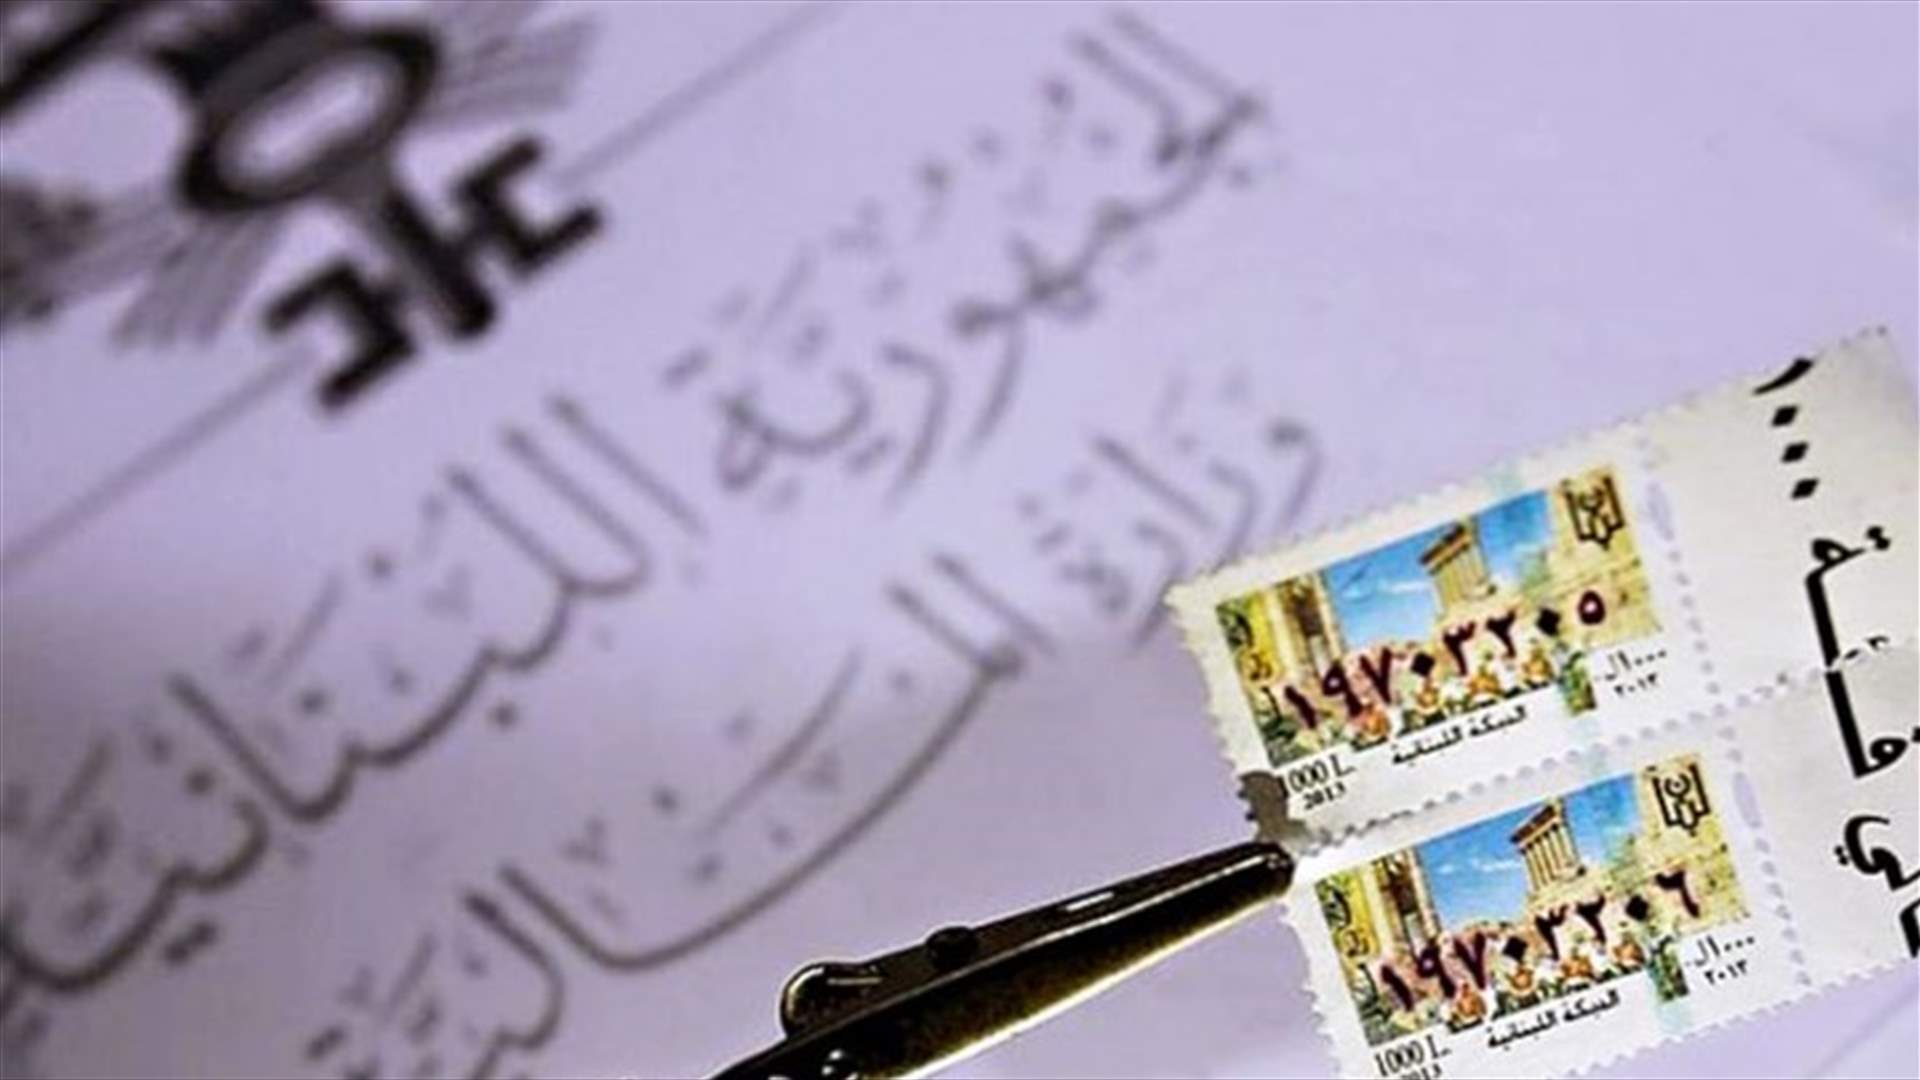 الجمهورية اللبنانية
وزارة المالية
١٩٧٠٣٢٠٥
١٠٠٠ ل.
٢٠١٣
الدبكة اللبنانية
1000 L.
2013
١٩٧٠٣٢٠٦
١٠٠٠ ل.
٢٠١٣
الدبكة اللبنانية
1000 L.
2013
١٠٠٠